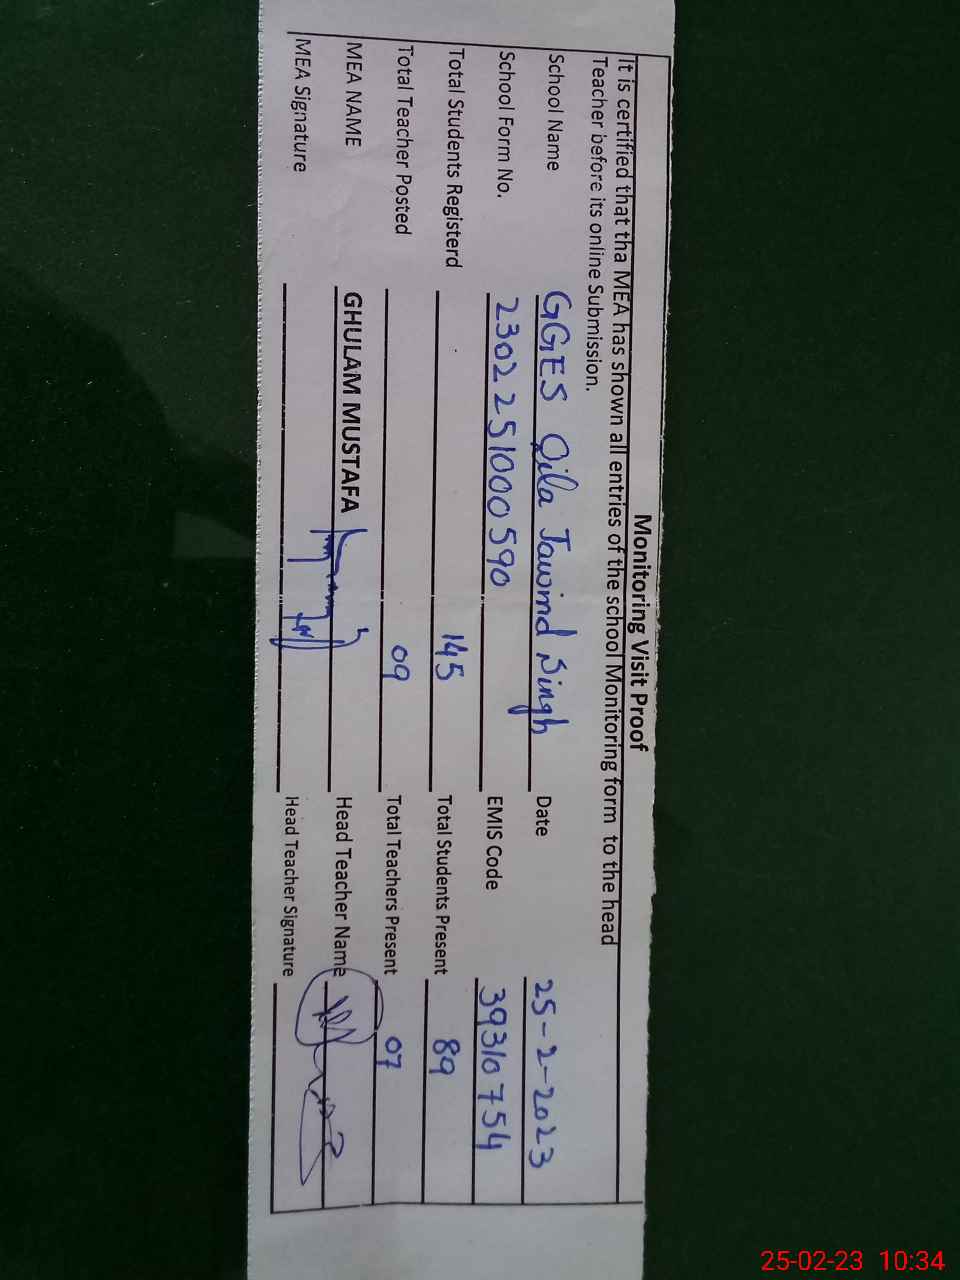 Monitoring Visit Proof
It is certified that tha MEA has shown all entries of the school Monitoring form to the head
Teacher before its online Submission.
School Name GGES Qila Jawind Singh Date 25-2-2023
School Form No. 2302251000590 EMIS Code 39310754
Total Students Registerd 145 Total Students Present 89
Total Teacher Posted 09 Total Teachers Present 07
MEA NAME GHULAM MUSTAFA Head Teacher Name
MEA Signature Head Teacher Signature
25-02-23 10:34